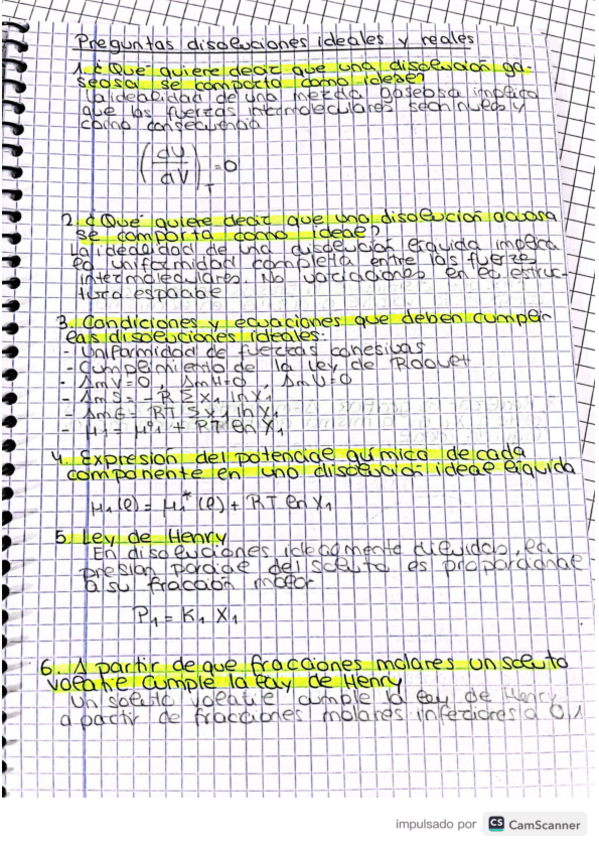 Preguntas disoluciones ideales y reales
1. ¿Qué quiere decir que una disolución ga-
seosa se comporta como ideal?
La idealidad de una mezcla gaseosa implica
que las fuerzas intermoleculares sean nulas y
como consecuencia
(dU/dV)T = 0
2. ¿Qué quiere decir que una disolución acuosa
se comporta como ideal?
La idealidad de una disolución líquida implica
la uniformidad completa entre las fuerzas
intermoleculares. No variaciones en la estruc-
tura espacial
3. Condiciones y ecuaciones que deben cumplir
las disoluciones ideales:
- Uniformidad de fuerzas cohesivas
- Cumplimiento de la Ley de Raoult
- ΔmV=0, ΔmH=0, ΔmU=0
- ΔmS = -R Σ x1 ln x1
- ΔmG = RT Σ x1 ln x1
- μ1 = μ°1 + RT ln x1
4. Expresión del potencial químico de cada
componente en una disolución ideal líquida
μ1(l) = μ1*(l) + RT ln x1
5. Ley de Henry
En disoluciones idealmente diluidas, la
presión parcial del soluto es proporcional
a su fracción molar
P1 = K1 X1
6. A partir de que fracciones molares un soluto
volatil cumple la ley de Henry
Un soluto volatil cumple la ley de Henry
a partir de fracciones molares inferiores a 0,1
impulsado por CS CamScanner